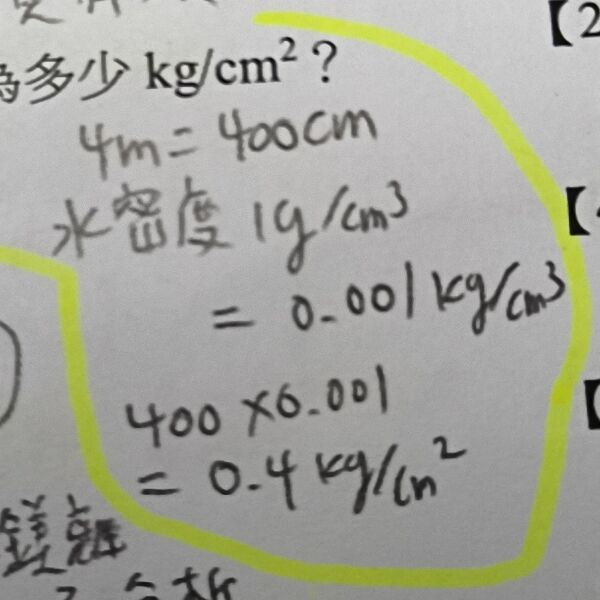 為多少 kg/cm²？
4m = 400cm
水密度 1g/cm³
= 0.001 kg/cm³
400 × 0.001
= 0.4 kg/cm²
【2
【
【